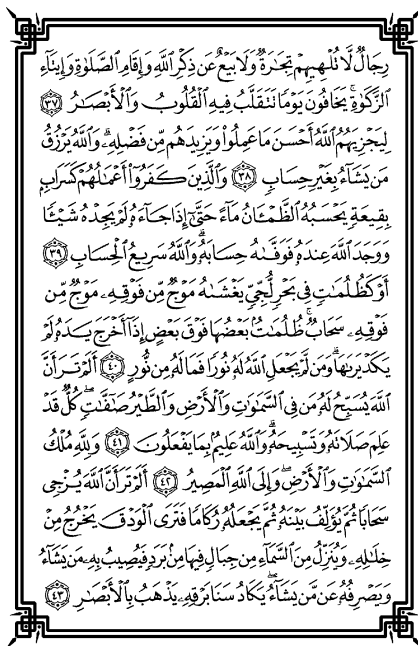 رِجَالٌ لَّا تُلْهِيهِمْ تِجَٰرَةٌ وَلَا بَيْعٌ عَن ذِكْرِ ٱللَّهِ وَإِقَامِ ٱلصَّلَوٰةِ وَإِيتَآءِ
ٱلزَّكَوٰةِ ۙ يَخَافُونَ يَوْمًا تَتَقَلَّبُ فِيهِ ٱلْقُلُوبُ وَٱلْأَبْصَٰرُ ٣٧
لِيَجْزِيَهُمُ ٱللَّهُ أَحْسَنَ مَا عَمِلُوا۟ وَيَزِيدَهُم مِّن فَضْلِهِۦ ۗ وَٱللَّهُ يَرْزُقُ
مَن يَشَآءُ بِغَيْرِ حِسَابٍ ٣٨ وَٱلَّذِينَ كَفَرُوٓا۟ أَعْمَٰلُهُمْ كَسَرَابٍۭ
بِقِيعَةٍ يَحْسَبُهُ ٱلظَّمْـَٔانُ مَآءً حَتَّىٰٓ إِذَا جَآءَهُۥ لَمْ يَجِدْهُ شَيْـًٔا
وَوَجَدَ ٱللَّهَ عِندَهُۥ فَوَفَّىٰهُ حِسَابَهُۥ ۗ وَٱللَّهُ سَرِيعُ ٱلْحِسَابِ ٣٩
أَوْ كَظُلُمَٰتٍ فِى بَحْرٍ لُّجِّىٍّ يَغْشَىٰهُ مَوْجٌ مِّن فَوْقِهِۦ مَوْجٌ مِّن
فَوْقِهِۦ سَحَابٌ ۚ ظُلُمَٰتٌۢ بَعْضُهَا فَوْقَ بَعْضٍ إِذَآ أَخْرَجَ يَدَهُۥ لَمْ
يَكَدْ يَرَىٰهَا ۗ وَمَن لَّمْ يَجْعَلِ ٱللَّهُ لَهُۥ نُورًا فَمَا لَهُۥ مِن نُّورٍ ٤٠ أَلَمْ تَرَ أَنَّ
ٱللَّهَ يُسَبِّحُ لَهُۥ مَن فِى ٱلسَّمَٰوَٰتِ وَٱلْأَرْضِ وَٱلطَّيْرُ صَٰٓفَّٰتٍ ۖ كُلٌّ قَدْ
عَلِمَ صَلَاتَهُۥ وَتَسْبِيحَهُۥ ۗ وَٱللَّهُ عَلِيمٌۢ بِمَا يَفْعَلُونَ ٤١ وَلِلَّهِ مُلْكُ
ٱلسَّمَٰوَٰتِ وَٱلْأَرْضِ ۖ وَإِلَى ٱللَّهِ ٱلْمَصِيرُ ٤٢ أَلَمْ تَرَ أَنَّ ٱللَّهَ يُزْجِى
سَحَابًا ثُمَّ يُؤَلِّفُ بَيْنَهُۥ ثُمَّ يَجْعَلُهُۥ رُكَامًا فَتَرَى ٱلْوَدْقَ يَخْرُجُ مِنْ
خِلَٰلِهِۦ وَيُنَزِّلُ مِنَ ٱلسَّمَآءِ مِن جِبَالٍ فِيهَا مِنۢ بَرَدٍ فَيُصِيبُ بِهِۦ مَن يَشَآءُ
وَيَصْرِفُهُۥ عَن مَّن يَشَآءُ ۖ يَكَادُ سَنَا بَرْقِهِۦ يَذْهَبُ بِٱلْأَبْصَٰرِ ٤٣